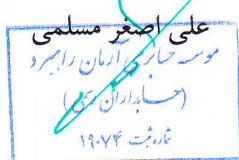 علی اصغر مسلمی
موسسه حسابرسی آرمان راهبرد
(حسابداران رسمی)
شماره ثبت ۱۹۰۷۴